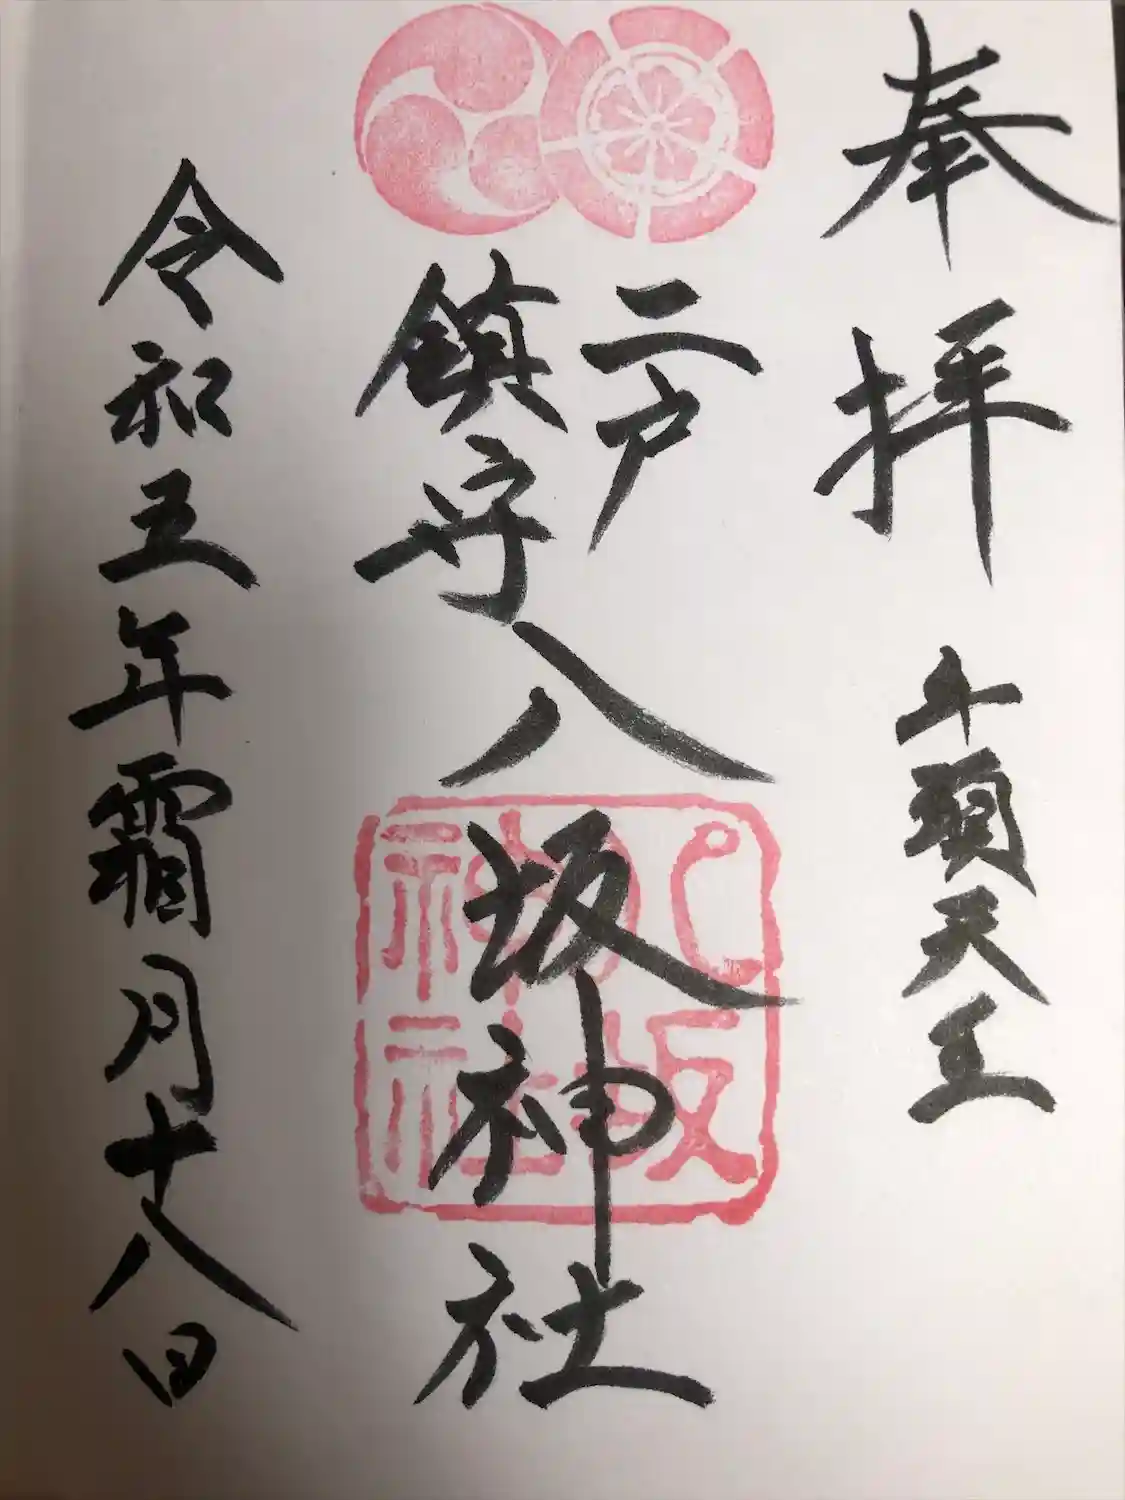 奉拝 牛頭天王
二戸
鎮守八坂神社
八坂
神社
令和五年霜月十八日